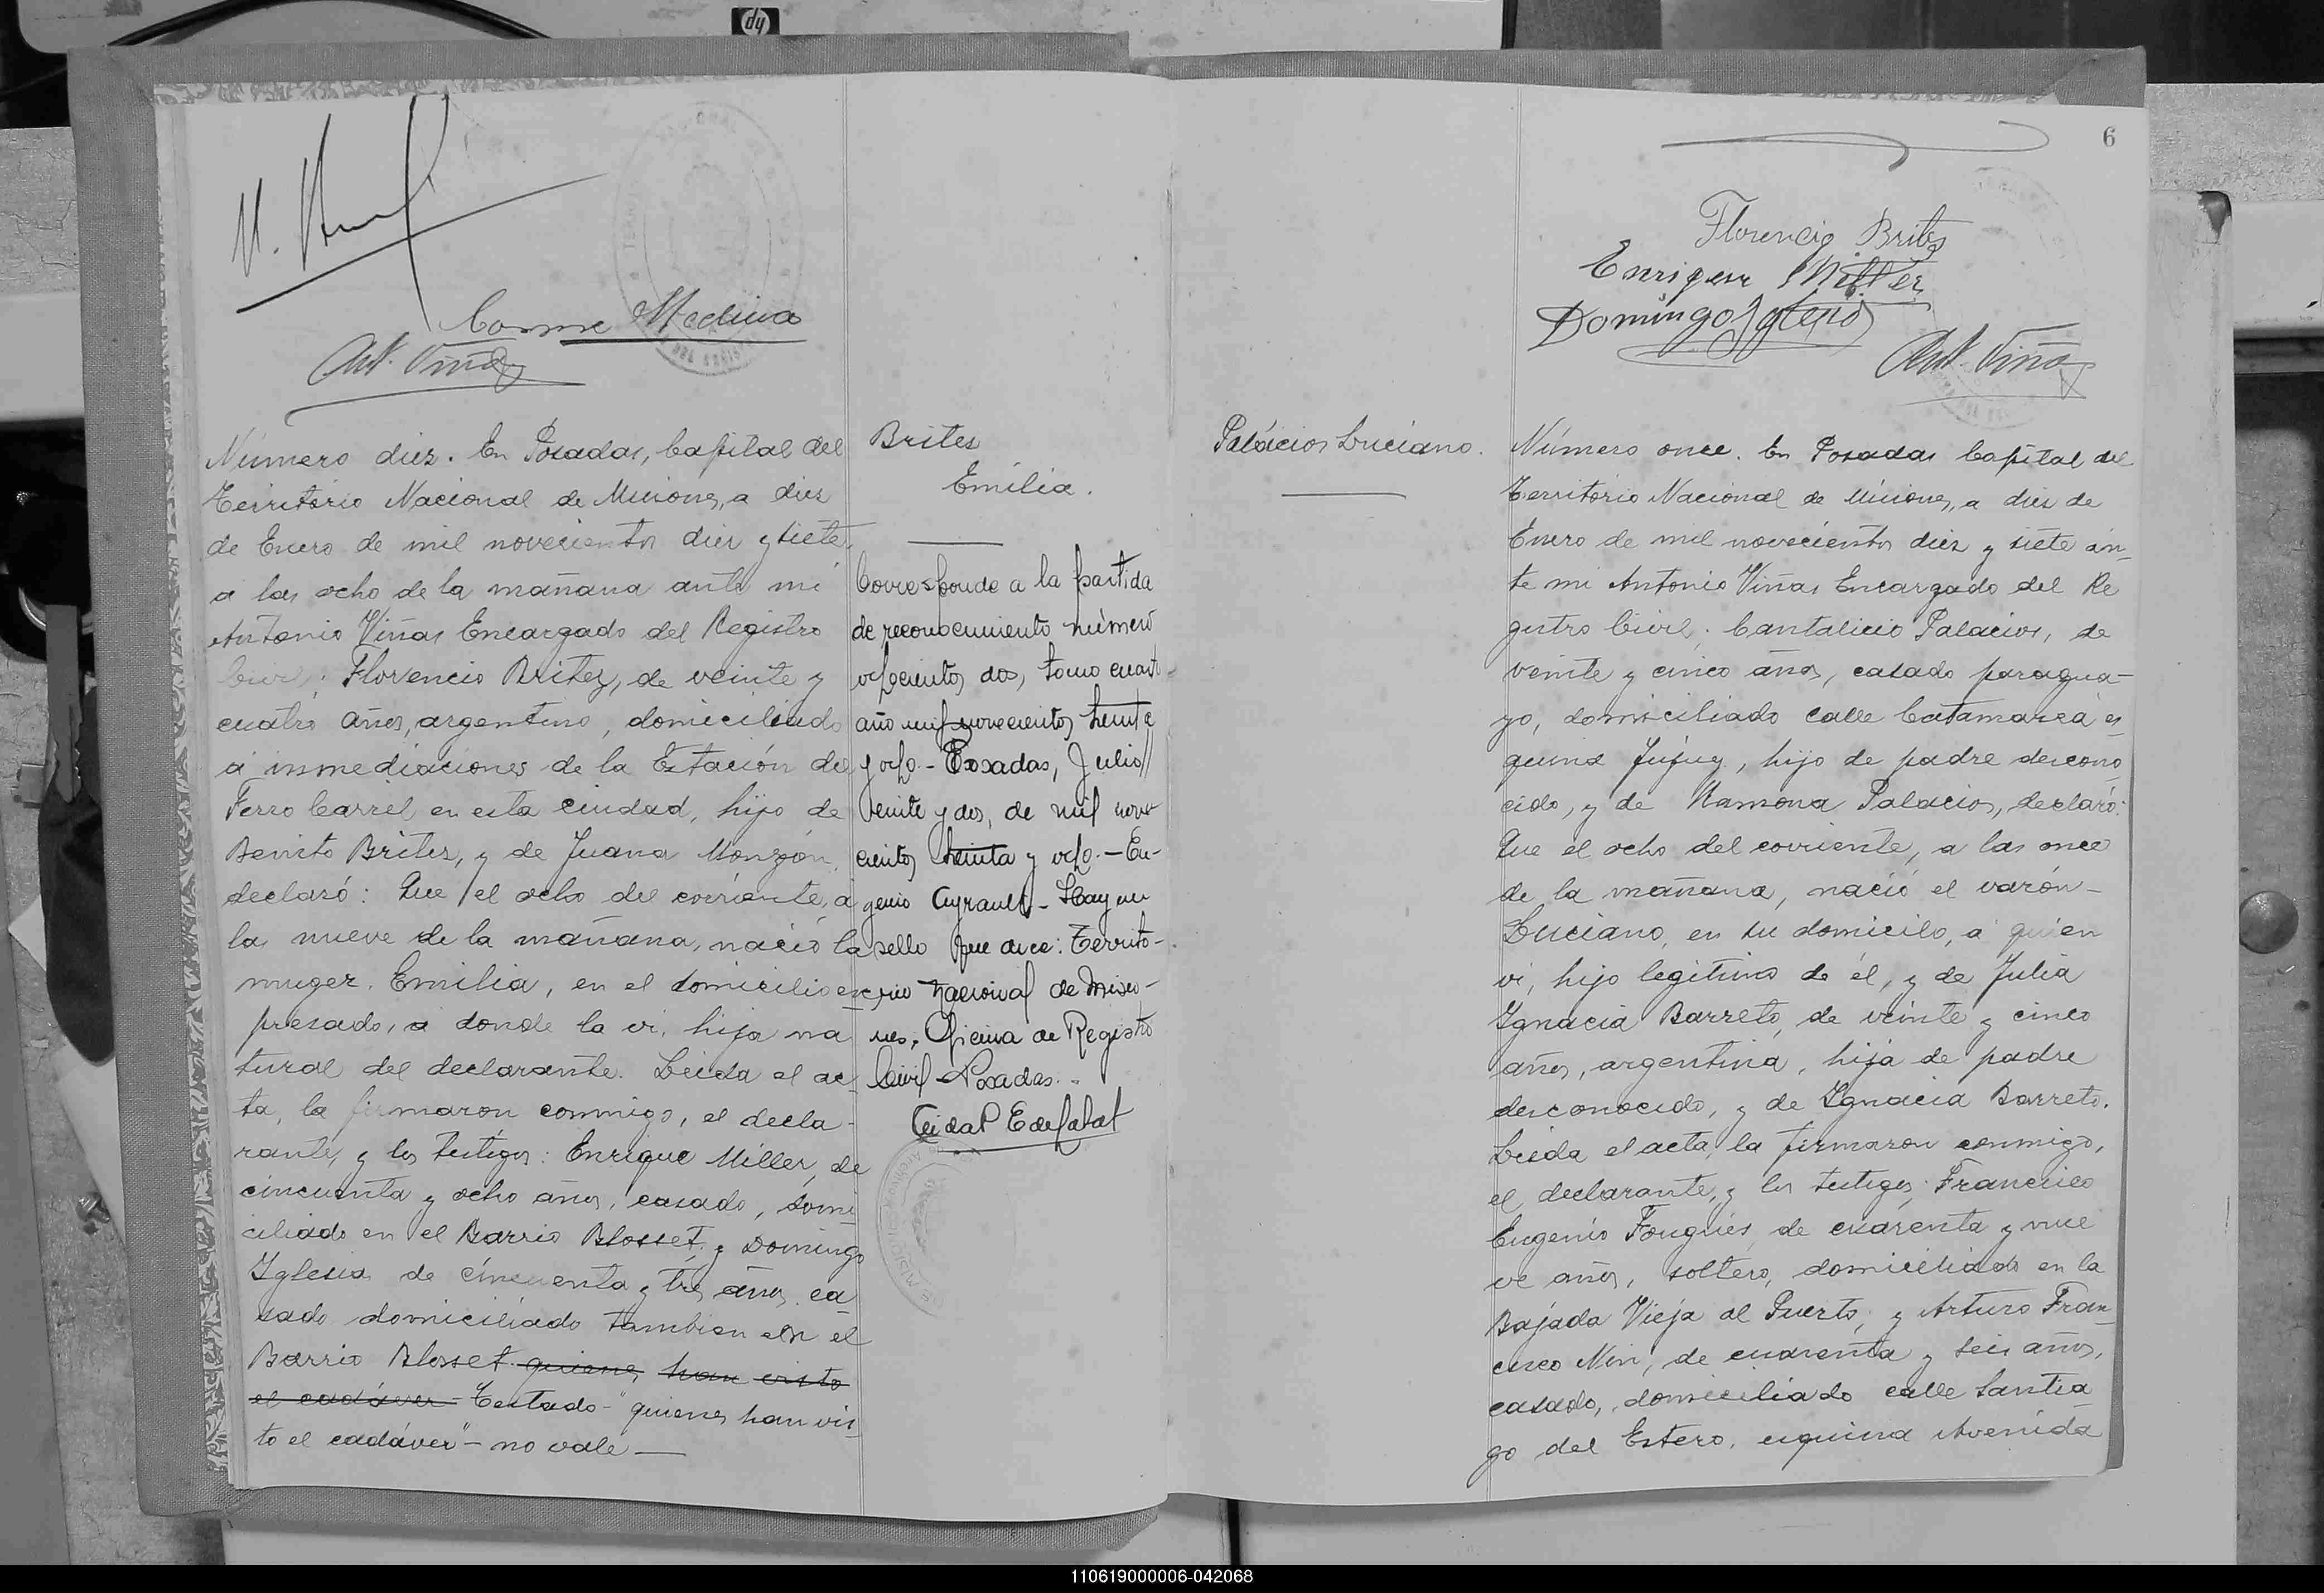 hp
Cosme Medina
Ant. Viñas
Número diez. En Posadas, Capital del
Territorio Nacional de Misiones, a diez
de Enero de mil novecientos diez y siete,
a las ocho de la mañana ante mi
Antonio Viñas Encargado del Registro
Civil; Florencio Britez, de veinte y
cuatro años, argentino, domiciliado
á inmediaciones de la Estación del
Ferro Carril en esta ciudad, hijo de
Benito Britez, y de Juana Monzón,
declaró: Que el ocho del corriente, a
las nueve de la mañana, nació la
muger, Emilia, en el domicilio ex-
presado, a donde la vi, hija na
tural del declarante. Leida el ac
ta, la firmaron conmigo, el decla-
rante, y los testigos: Enrique Miller, de
cincuenta y ocho años, casado, domi
ciliado en el Barrio Blosset, y Domingo
Iglesia de cincuenta y tres años, ca
sado domiciliado tambien en el
Barrio Blosset quienes han visto
el cadáver - Testado - "quienes han vis
to el cadáver" - no vale —
Brites
Emilia.
Corresponde a la partida
de reconocimiento número
ochocientos dos, tomo cuarto
año mil novecientos treinta
y ocho. - Posadas, Julio
veinte y dos, de mil nove
cientos treinta y ocho. - Eu-
genio Ayrault - Hay un
sello que dice: Territo-
rio Nacional de Misio-
nes, Oficina de Registro
Civil - Posadas. -
6
Florencio Brites
Enrique Miller
Domingo
Ant. Viñas
Palácios Luciano.
Número once. En Posadas Capital del
Territorio Nacional de Misiones, a diez de
Enero de mil novecientos diez y siete an-
te mi Antonio Viñas Encargado del Re
gistro Civil; Cantalicio Palacios, de
veinte y cinco años, casado paragua-
yo, domiciliado calle Catamarca es
quina Jujuy, hijo de padre descono
cido, y de Ramona Palacios, declaró:
Que el ocho del corriente, a las once
de la mañana, nació el varón-
Luciano, en su domicilo, a quien
vi, hijo legitimo de él, y de Julia
Ignacia Barreto, de veinte y cinco
años, argentina, hija de padre
desconocido, y de Ignacia Barreto.
Leida el acta, la firmaron conmigo,
el declarante, y los testigos: Francisco
Eugenio Fouguies, de cuarenta y nue
ve años, soltero, domiciliado en la
Bajada Vieja al Puerto, y Arturo Fran
cisco Nin, de cuarenta y seis años,
casado, domiciliado calle Santia
go del Estero, esquina Avenida
110619000006-042068